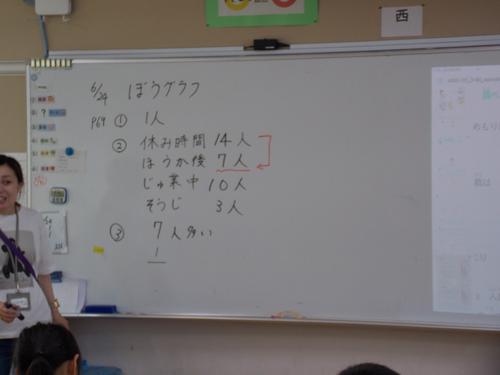 西
6/24 ぼうグラフ
P69 ① 1人
② 休み時間 14人
ほうか後 7人
じゅ業中 10人
そうじ 3人
③ 7人多い
1